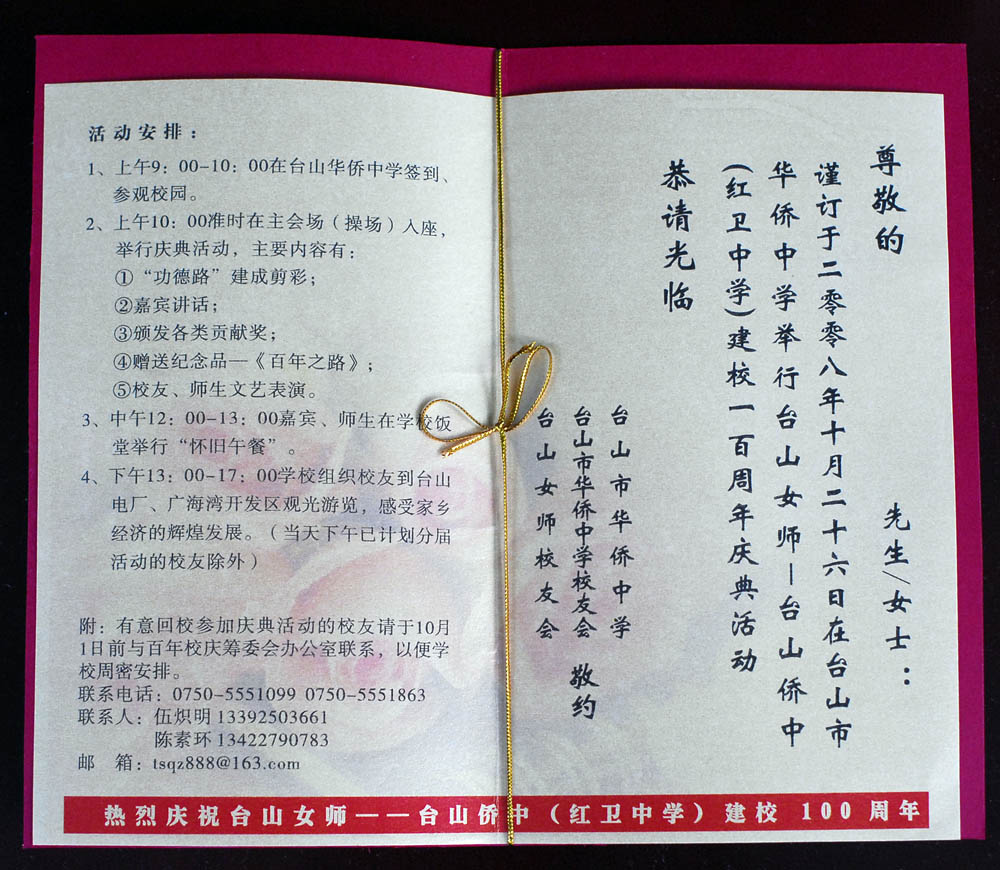 活动安排：
1、上午9：00-10：00在台山华侨中学签到、
参观校园。
2、上午10：00准时在主会场（操场）入座，
举行庆典活动，主要内容有：
①“功德路”建成剪彩；
②嘉宾讲话；
③颁发各类贡献奖；
④赠送纪念品—《百年之路》；
⑤校友、师生文艺表演。
3、中午12：00-13：00嘉宾、师生在学校饭
堂举行“怀旧午餐”。
4、下午13：00-17：00学校组织校友到台山
电厂、广海湾开发区观光游览，感受家乡
经济的辉煌发展。（当天下午已计划分届
活动的校友除外）
附：有意回校参加庆典活动的校友请于10月
1日前与百年校庆筹委会办公室联系，以便学
校周密安排。
联系电话：0750-5551099 0750-5551863
联系人：伍炽明 13392503661
陈素环 13422790783
邮 箱：tsqz888@163.com
尊敬的 先生/女士：
谨订于二零零八年十月二十六日在台山市
华侨中学举行台山女师—台山侨中
(红卫中学)建校一百周年庆典活动
恭请光临
台山市华侨中学
台山市华侨中学校友会 敬约
台山女师校友会
热烈庆祝台山女师——台山侨中（红卫中学）建校 100 周年